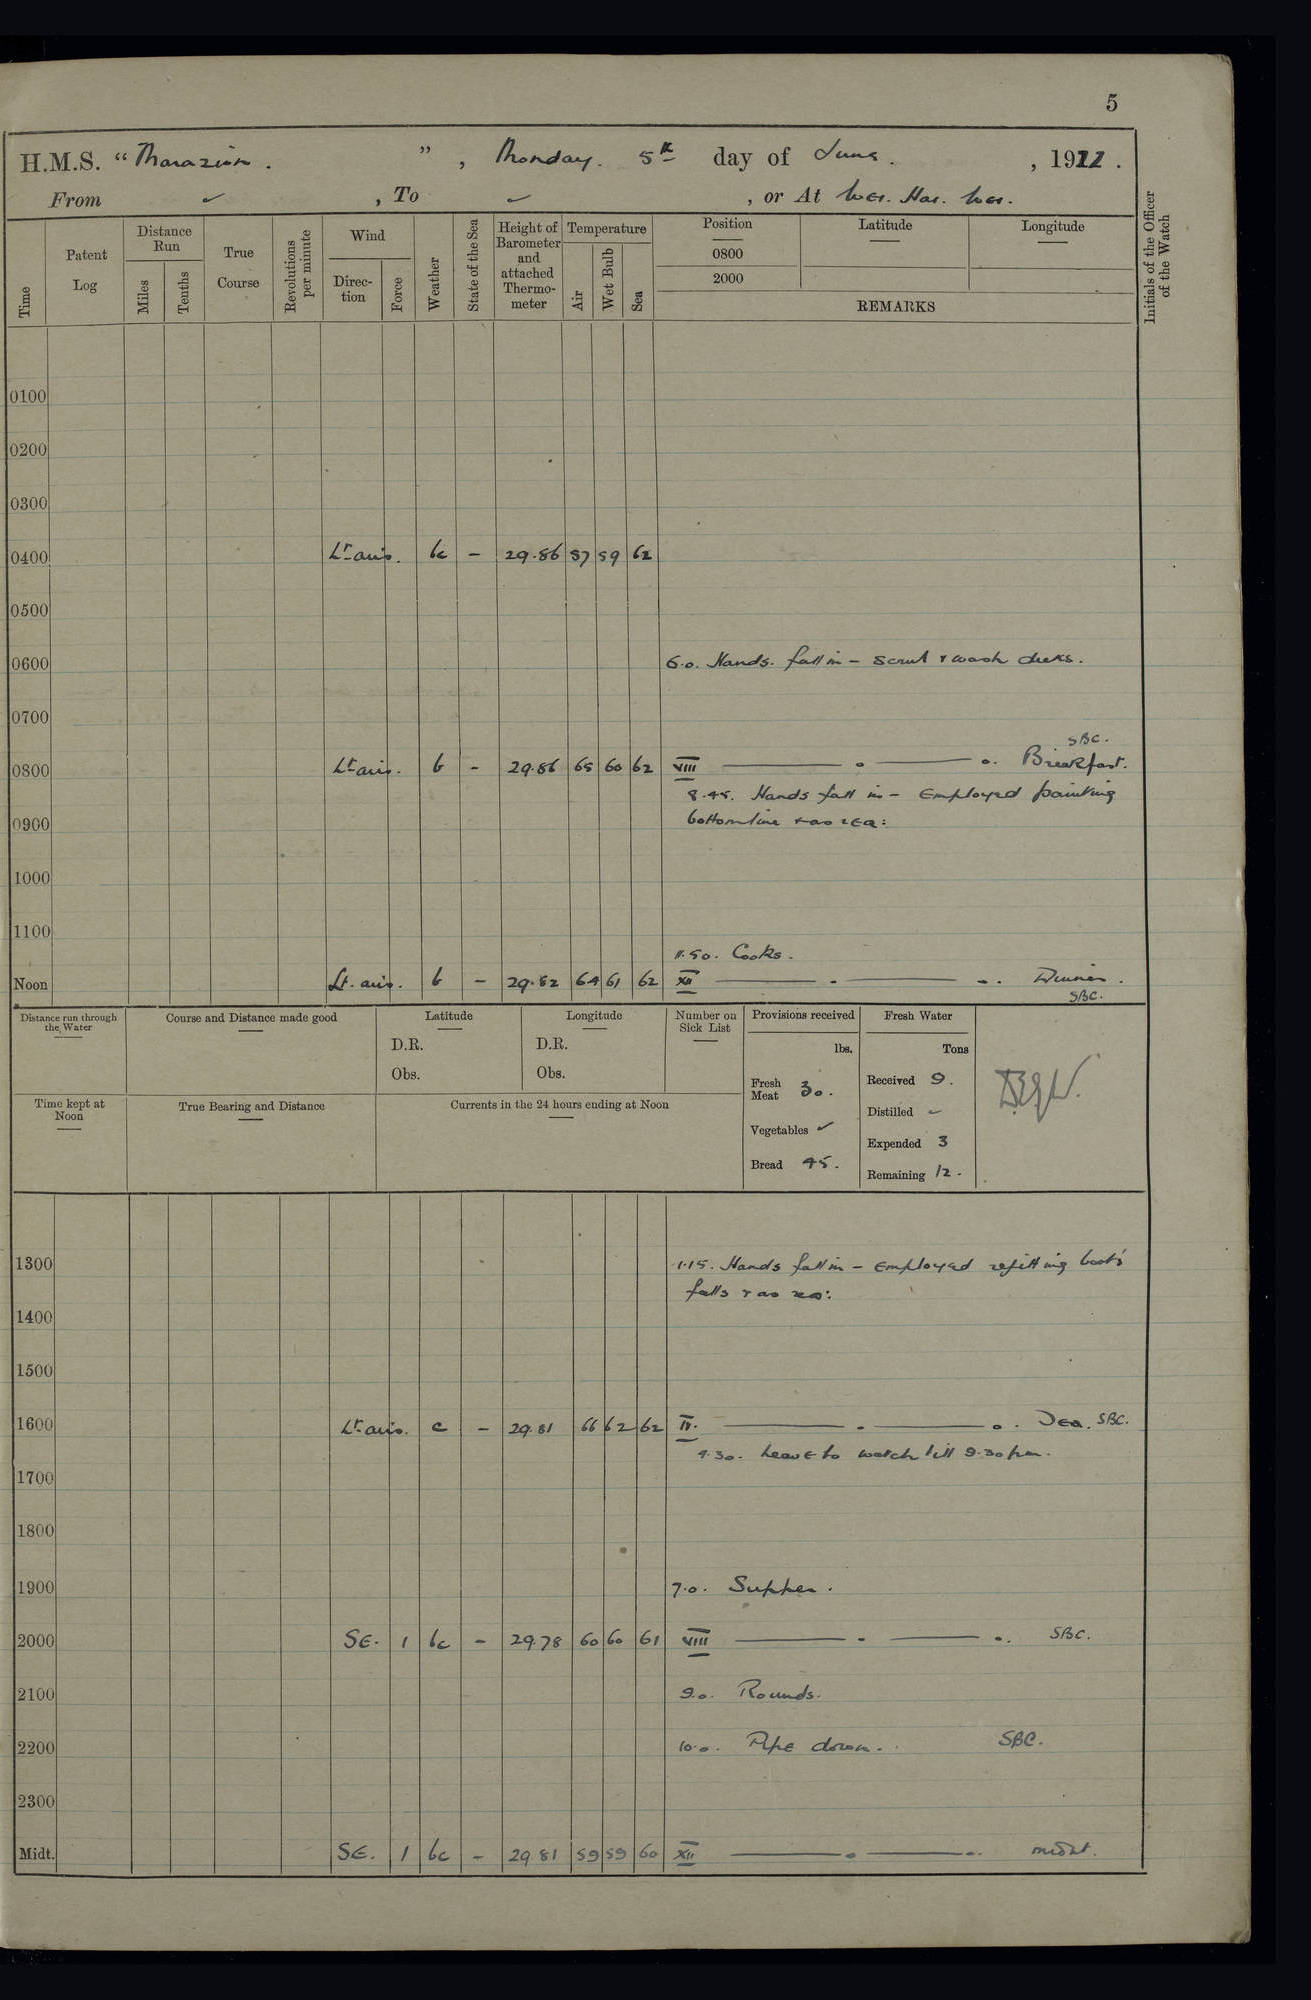 5
H.M.S. “Marazion.”, Monday. 5th day of June. , 1922.
From ✓ , To ✓ , or At Wei. Hai. Wei.
Time Patent Log Distance Run Miles Tenths True Course Revolutions per minute Wind Direc-tion Force Weather State of the Sea Height of Barometer and attached Thermo-meter Temperature Air Wet Bulb Sea Position 0800 2000 Latitude Longitude REMARKS Initials of the Officer of the Watch
0100
0200
0300
0400 Lt airs. bc - 29.86 57 59 62
0500
0600 6.0. Hands. fall in - scrub & wash decks.
0700
SBC.
0800 Lt airs. b - 29.86 65 60 62 VIII Breakfast.
8.45. Hands fall in - Employed painting
0900 bottom line & as req:
1000
1100
11.50. Cooks.
Noon Lt. airs. b - 29.82 64 61 62 XII Dinner.
SBC.
Distance run through the Water Course and Distance made good Latitude Longitude Number on Sick List Provisions received Fresh Water
D.R. D.R. lbs. Tons
Obs. Obs. Fresh Meat 30. Received 9.
Time kept at Noon True Bearing and Distance Currents in the 24 hours ending at Noon
Distilled ✓
Vegetables ✓ Expended 3
Bread 45. Remaining 12.
1300 1.15. Hands fall in - Employed refitting boat's
falls & as req:
1400
1500
1600 Lt airs. c - 29.81 66 62 62 IV. Tea. SBC.
4.30. Leave to watch till 9.30 pm.
1700
1800
1900 7.0. Supper.
2000 SE. 1 bc - 29.78 60 60 61 VIII SBC.
2100 9.0. Rounds.
2200 10.0. Pipe down. SBC.
2300
Midt. SE. 1 bc - 29 81 59 59 60 XII midnt.